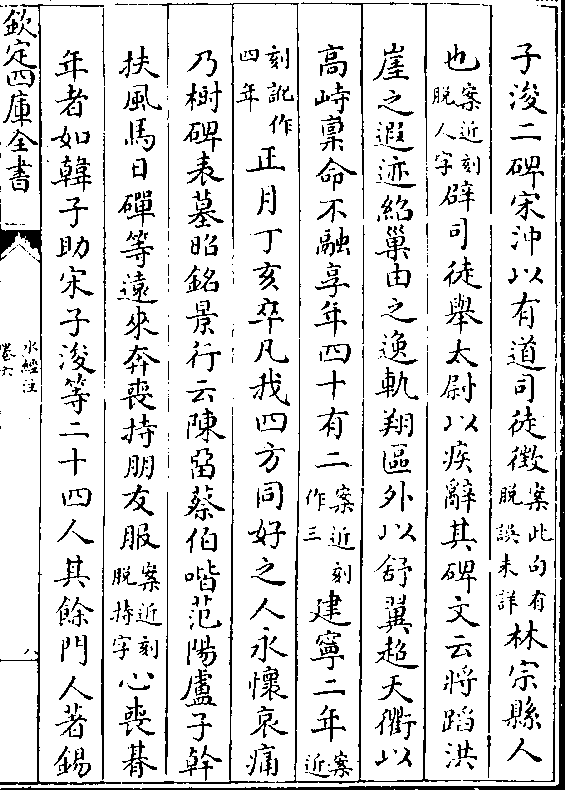 子浚二碑宋沖以有道司徒徵案此句有脱誤未詳林宗縣人
也案近刻脱人字辟司徒舉太尉以疾辭其碑文云將蹈洪
崖之遐迹紹巢由之逸軌翔區外以舒翼超天衢以
高峙稟命不融享年四十有二案近刻作三建寧二年案近
刻訛作四年正月丁亥卒凡我四方同好之人永懷哀痛
乃樹碑表墓昭銘景行云陳留蔡伯喈范陽盧子幹
扶風馬日磾等遠來奔喪持朋友服案近刻脱持字心喪朞
年者如韓子助宋子浚等二十四人其餘門人著錫
欽定四庫全書
水經注
卷六
八